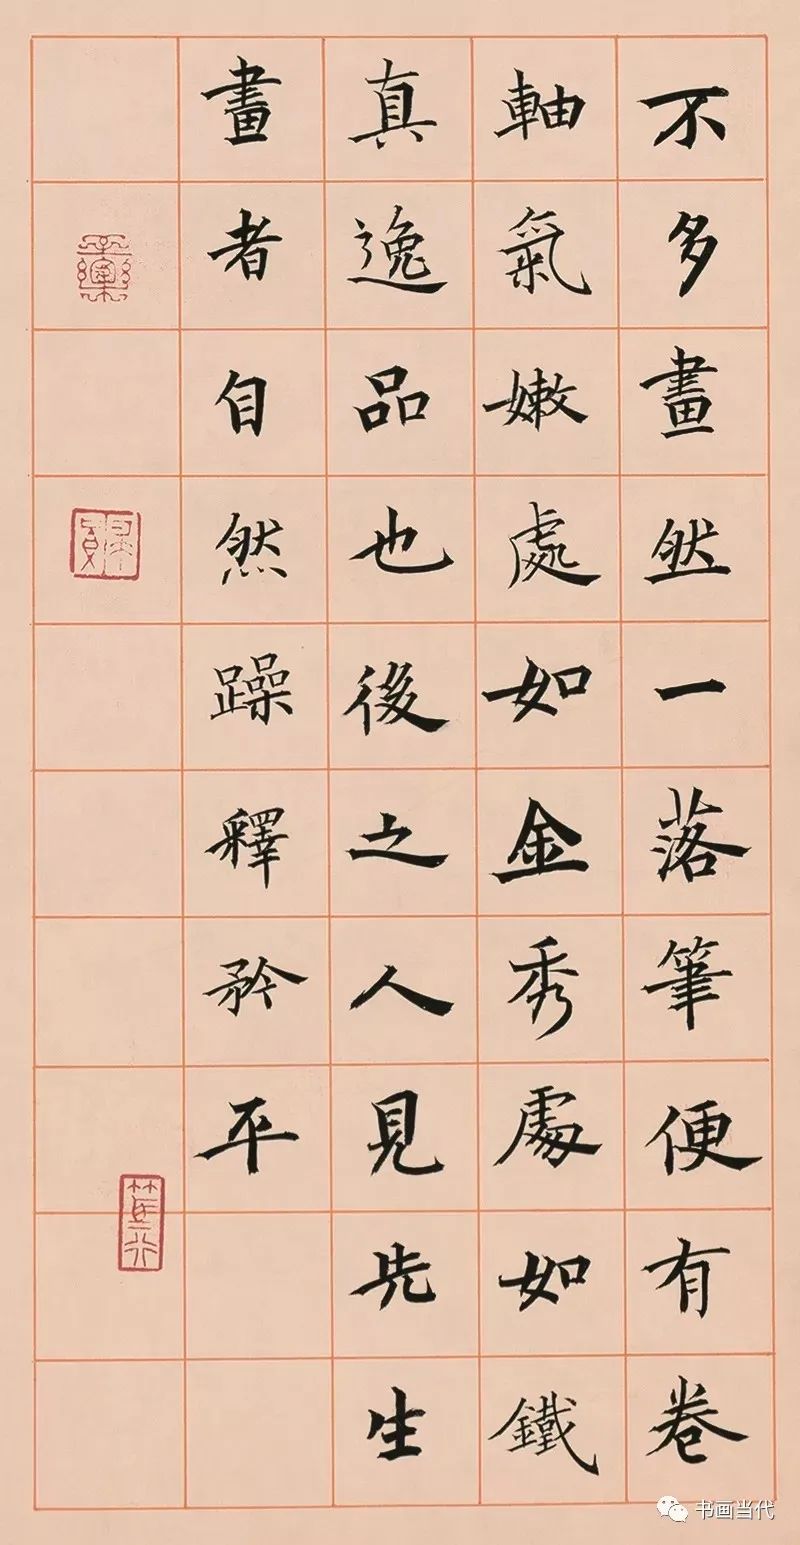 不多畫然一落筆便有卷
軸氣嫩處如金秀處如鐵
真逸品也後之人見先生
畫者自然躁釋矜平
书画当代